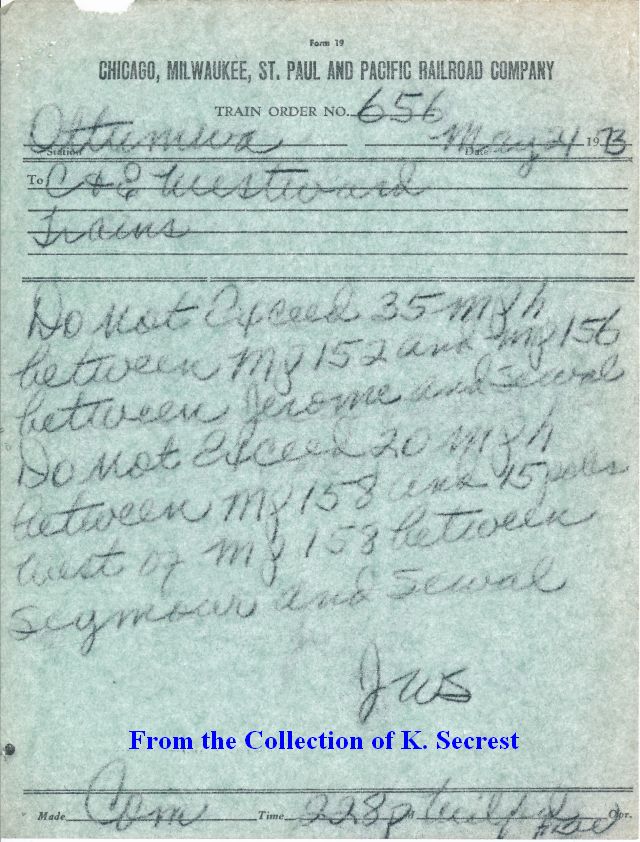 Form 19
CHICAGO, MILWAUKEE, ST. PAUL AND PACIFIC RAILROAD COMPANY
TRAIN ORDER NO. 656
Ottumwa May 21 1973
Station Date
To C & E Westward
Trains
Do Not Exceed 35 mph
between MP 152 and MP 156
between Jerome and Sewal
Do Not Exceed 20 mph
between MP 158 and 15 poles
west of MP 158 between
Seymour and Sewal
JWS
From the Collection of K. Secrest
Made Com Time 228p M Opr.